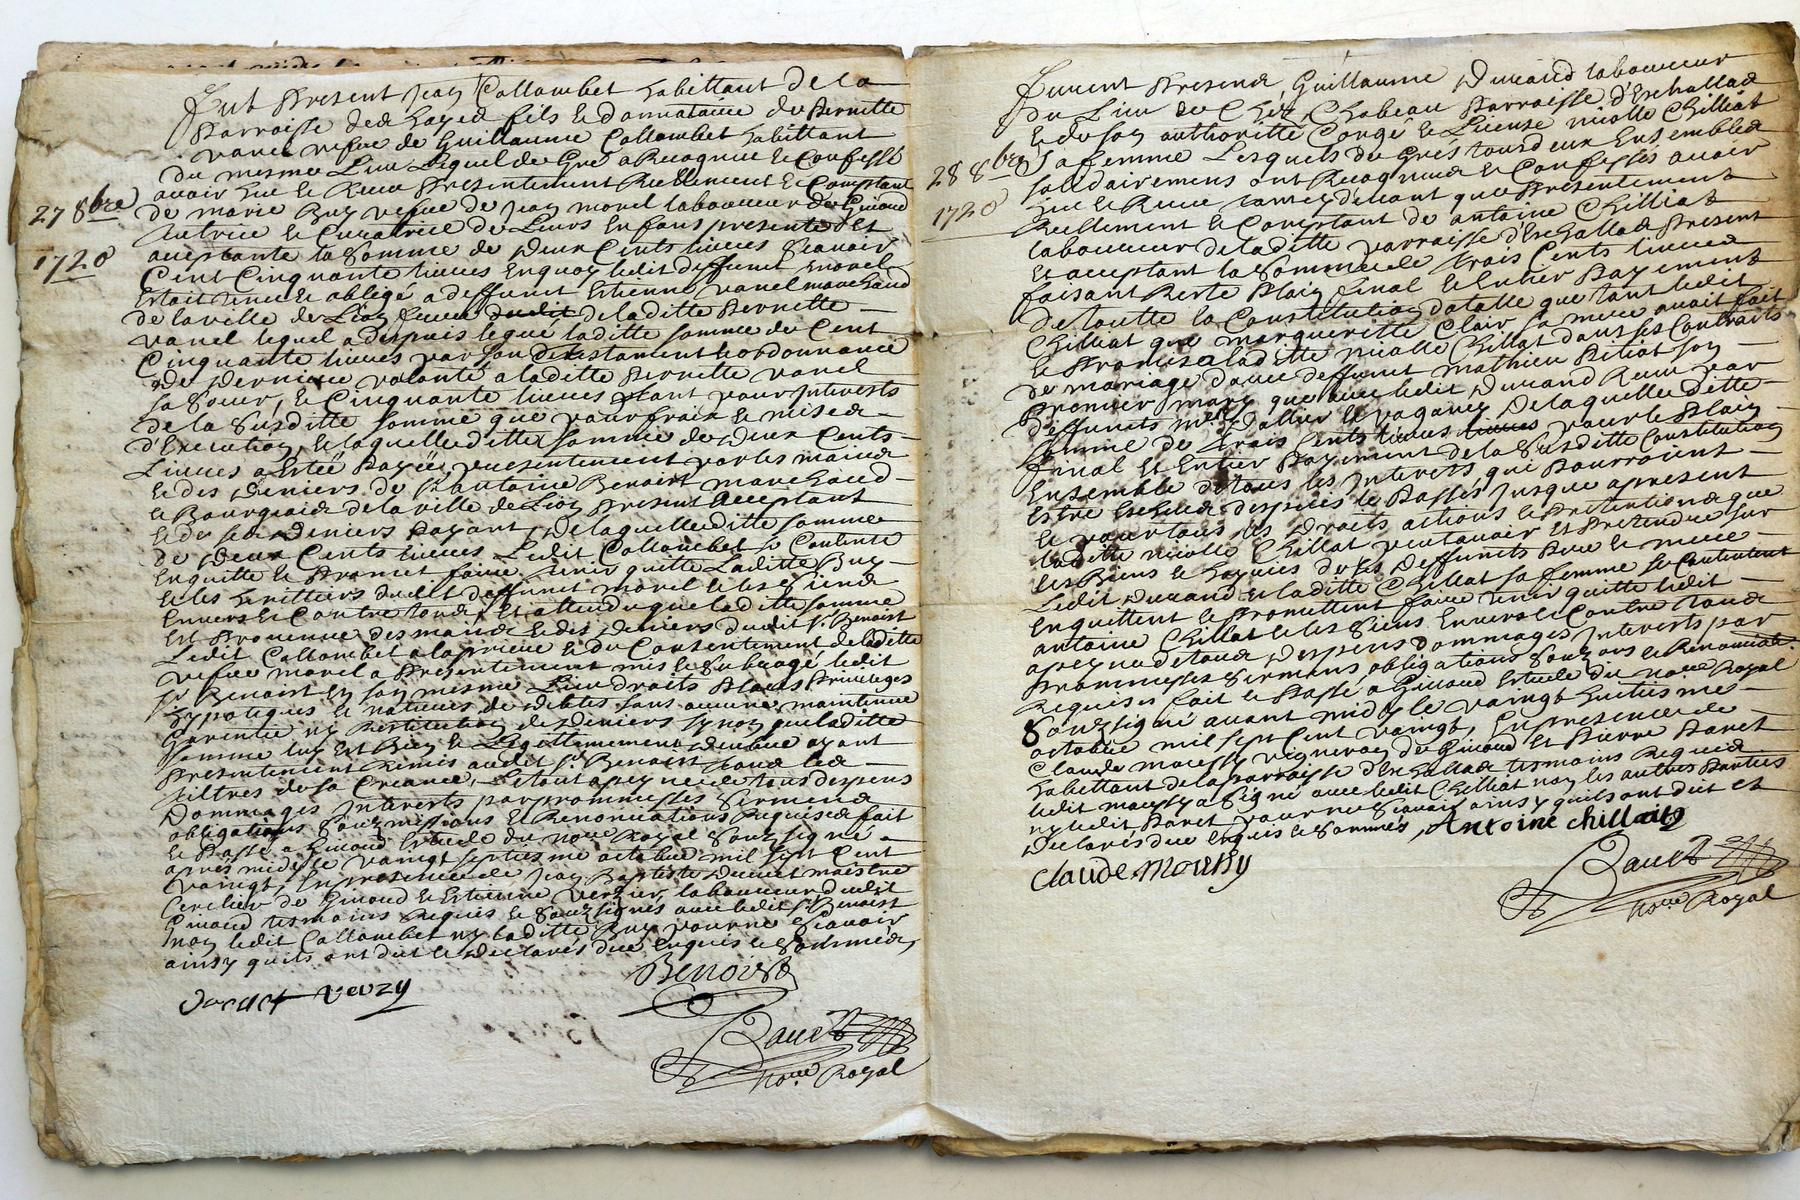 27 8bre
1720
Fut Present Jean Collombet habittant de la
Parroisse des hayes fils & donnataire de Pernette
Vanel vefve de Guillaume Collombet habittant
du mesme Lieu Lequel de Gré a Recognu & Confessé
avoir heu & Receu Presentement Reellement & Comptant
de marie Buy vefve de Jean morel laboureur de Givord
tutrice & Curatrice de Leurs Enfans presente Et
acceptante la Somme de Deux Cents livres Scavoir
Cent Cinquante livres Enquoy ledit deffunct morel
Estait tenu & obligé a deffunct Estienne vanel marchand
de la ville de Lion frere de laditte Pernette
vanel lequel a despuis legué laditte somme de Cent
Cinquante livres par son testament & ordonnance
de Derniere volonté a laditte Pernette vanel
sa Soeur, & Cinquante livres tant pour Interests
de la Susditte somme que pour frais & mises
d'Execution, de laquelle ditte somme de Deux Cents
Livres a Estée Payée presentement par les mains
& des Deniers de Sr. Antoine Benoist marchand
& Bourgeois de la ville de Lion Present Acceptant
& de ses deniers payant, De laquelle ditte somme
de Deux Cents livres Ledit Collombet se Contente
Enquitte & Promet faire tenir quitte Laditte Buy
& les heritiers dudit deffunct morel & les Siens
Envers & Contre tous, Et attendu que laditte somme
Est Provenue des mains & des deniers dudit Sr. Benoist
Ledit Collombet a la priere & du Consentement de laditte
vefve morel a Presentement mis & Subrogé ledit
Sr. Benoist En son mesme Lieu droits Places Privileges
hypotiques & natures de debtes sans aucune maintenue
Garentie ny Restitution de deniers synon que laditte
somme luy Est Bien & Legittimement Deube ayant
Presentement Remis audit Sr. Benoist tous les
tiltres de sa Creance, Le tout a peyne de tous despens
Dommages Interests par promesses Serments
obligations Soubmissions & Renonciations Requises fait
& Passé a Givord Estude du nore Royal Soubsigné
apres midy le vaingt septiesme octobre mil sept Cent
vaingt, En presence de Jean Baptiste Ducret maistre
Cerclier de Givord & Estienne Verzier laboureur dudit
Givord tesmoins Requis & Soubsignés avec ledit Sr. Benoist
non ledit Collombet ny laditte Buy pour ne Scavoir
ainsy quils ont dit & declarés due Enquis & Sommés,
Benoist
Ducret verzy
noire Royal
28 8bre
1720
Furent Presents Guillaume Durand laboureur
Du Lieu de Chez Chabeau Parroisse d'Eschallas
& de son authoritté Congé & License nicolle Chilliat
Sa femme Lesquels de Grés tous deux Ensembles
solidairement ont Recognus & Confessés avoir
heu & Receu tant cy devant que Presentement
Reellement & Comptant de antoine Chilliat
laboureur de laditte parroisse d'Eschallas Present
Et acceptant la Somme de trois Cents livres
faisant Reste Plain final & Entier Payement
de toutte la Constitution dotalle que tant ledit
Chilliat que margueritte Clair sa mere avoit fait
a laditte nicolle Chillat dans ses Contracts
de mariage d'avec deffunct mathieu Pitiot son
Premier mary que avec ledit Durand Receu par
deffunts mes.
somme de trois Cents livres pour le Plain
final Et Entier Payement de la Susditte Constitution
Ensemble de tous les Interets qui Pourroient
Estre Escheus despuis le Passés Jusque apresent
& pour tous les droits actions & Pretentions que
laditte nicolle Chillat peut avoir Et Pretendre sur
les Biens & hoyries de ses deffunts Pere & mere
Ledit Durand & laditte Chillat sa femme se Contentent
Enquittent & Promettent faire tenir quitte ledit
antoine Chillat & les Siens Envers & Contre tous
a peyne de tous Despens dommages Interests par
Prommesses Serments, obligations Soubmons & Renonciaons.
Requises fait & Passé a Givord Estude du noire Royal
Soubsigné avant midy le vaingt huitiesme
octobre mil sept Cent vaingt, En presence de
Claude moussy vigneron de Givord Et Pierre Paret
habittant de la Parroisse d'Eschallas tesmoins Requis
ledit moussy a Signé avec ledit Chilliat non les autres Parties
ny ledit Paret pour ne Scavoir ainsy quils ont dit et
Declarés due Enquis & Sommés, Antoine chilliatt
Claude Moussy
noire Royal